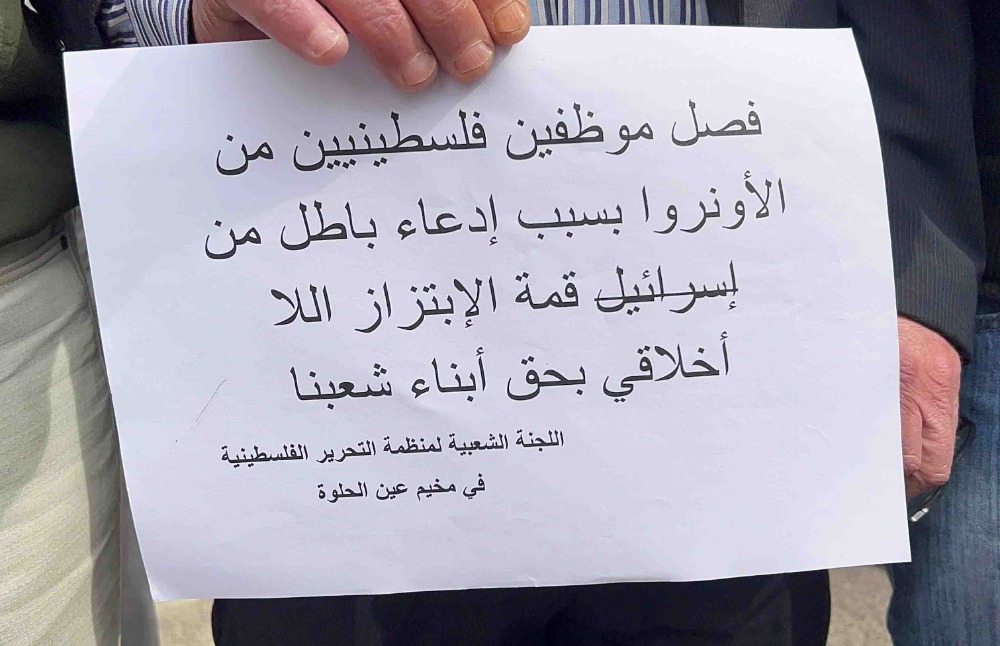 فصل موظفين فلسطينيين من
الأونروا بسبب إدعاء باطل من
إسرائيل قمة الإبتزاز اللا
أخلاقي بحق أبناء شعبنا
اللجنة الشعبية لمنظمة التحرير الفلسطينية
في مخيم عين الحلوة